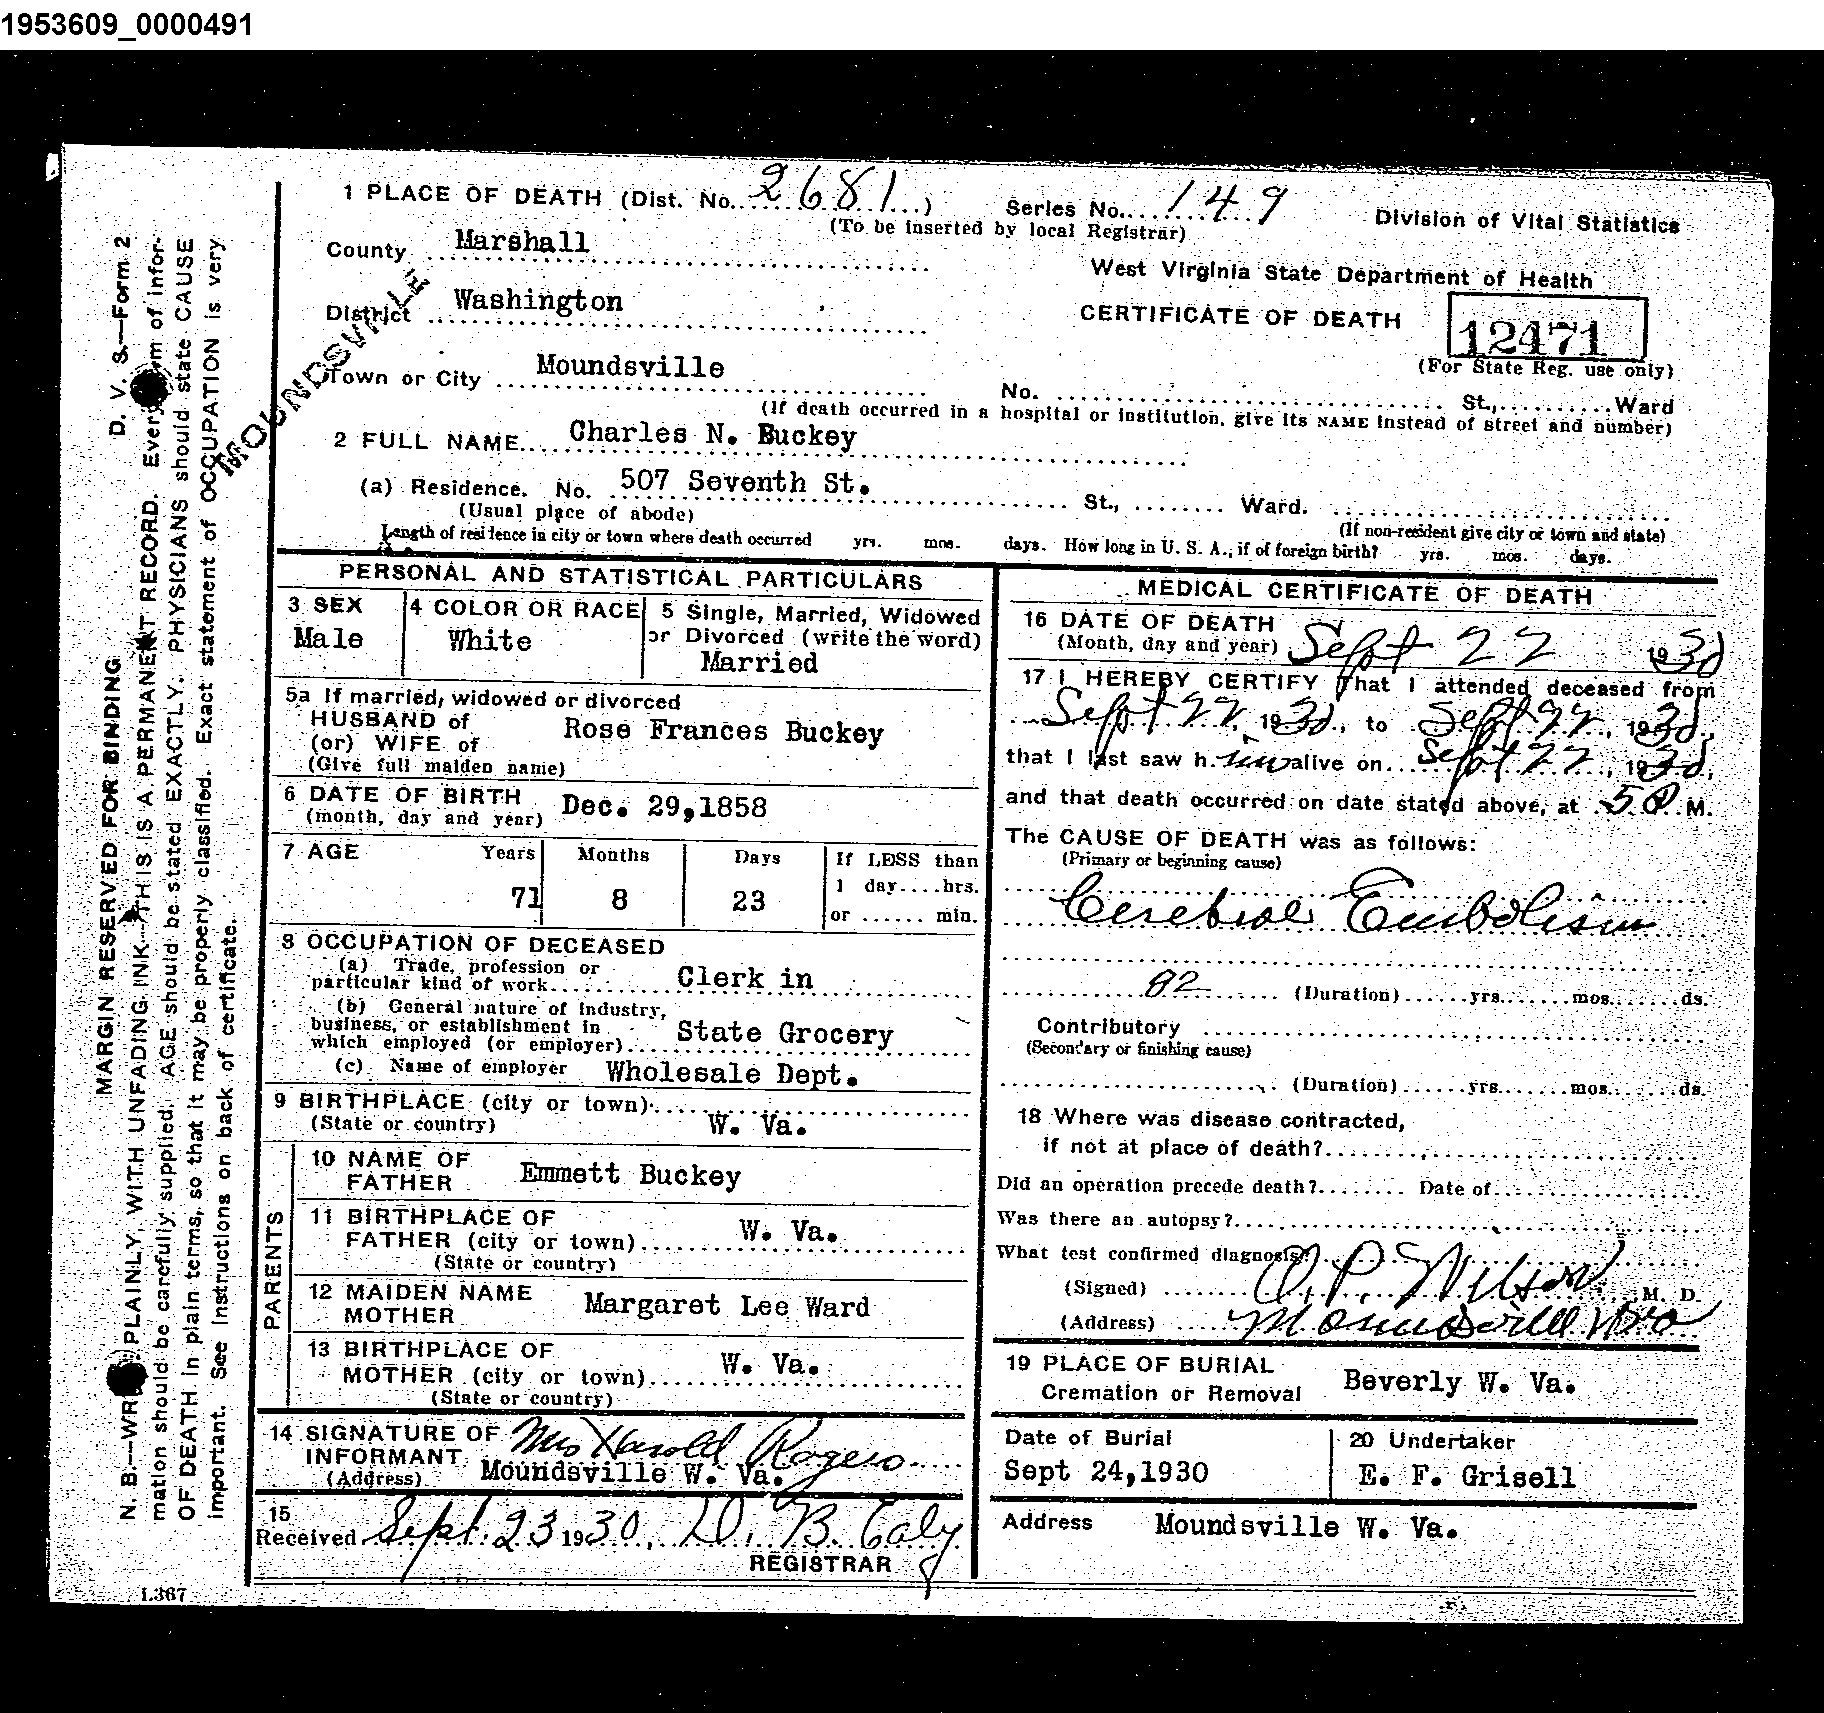 1953609_0000491
1 PLACE OF DEATH (Dist. No. 2681) Series No. 149 Division of Vital Statistics
(To be inserted by local Registrar)
County Marshall
West Virginia State Department of Health
District Washington
CERTIFICATE OF DEATH 12471
MOUNDSVILLE
Town or City Moundsville (For State Reg. use only)
No. St., Ward
(If death occurred in a hospital or institution, give its NAME instead of street and number)
2 FULL NAME Charles N. Buckey
(a) Residence. No. 507 Seventh St. St., Ward.
(Usual place of abode) (If non-resident give city or town and state)
Length of residence in city or town where death occurred yrs. mos. days. How long in U. S. A., if of foreign birth? yrs. mos. days.
PERSONAL AND STATISTICAL PARTICULARS
3 SEX 4 COLOR OR RACE 5 Single, Married, Widowed
or Divorced (write the word)
Male White Married
5a If married, widowed or divorced
HUSBAND of
(or) WIFE of Rose Frances Buckey
(Give full maiden name)
6 DATE OF BIRTH Dec. 29,1858
(month, day and year)
7 AGE Years Months Days If LESS than
1 day....hrs.
71 8 23
or ...... min.
8 OCCUPATION OF DECEASED
(a) Trade, profession or
particular kind of work Clerk in
(b) General nature of industry,
business, or establishment in
which employed (or employer) State Grocery
(c) Name of employer Wholesale Dept.
9 BIRTHPLACE (city or town)
(State or country) W. Va.
PARENTS
10 NAME OF
FATHER Emmett Buckey
11 BIRTHPLACE OF
FATHER (city or town) W. Va.
(State or country)
12 MAIDEN NAME
MOTHER Margaret Lee Ward
13 BIRTHPLACE OF
MOTHER (city or town) W. Va.
(State or country)
14 SIGNATURE OF
INFORMANT Mrs Harold Rogers
(Address) Moundsville W. Va.
15
Received Sept. 23 1930, D. B. Ealy
REGISTRAR
MEDICAL CERTIFICATE OF DEATH
16 DATE OF DEATH
(Month, day and year) Sept 22 1930
17 I HEREBY CERTIFY That I attended deceased from
Sept 22, 1930, to Sept 22, 1930,
that I last saw h im alive on Sept 22, 1930,
and that death occurred on date stated above, at 5 P. M.
The CAUSE OF DEATH was as follows:
(Primary or beginning cause)
Cerebral Embolism
82 (Duration) yrs. mos. ds.
Contributory
(Secondary or finishing cause)
(Duration) yrs. mos. ds.
18 Where was disease contracted,
if not at place of death?
Did an operation precede death? Date of
Was there an autopsy?
What test confirmed diagnosis?
(Signed) O. P. Wilson, M. D.
(Address) Moundsville W Va
19 PLACE OF BURIAL
Cremation or Removal Beverly W. Va.
Date of Burial 20 Undertaker
Sept 24,1930 E. F. Grisell
Address Moundsville W. Va.
D. V. S.—Form 2
MARGIN RESERVED FOR BINDING
N. B.—WRITE PLAINLY, WITH UNFADING INK—THIS IS A PERMANENT RECORD. Every item of infor-
mation should be carefully supplied. AGE should be stated EXACTLY. PHYSICIANS should state CAUSE
OF DEATH in plain terms, so that it may be properly classified. Exact statement of OCCUPATION is very
important. See Instructions on back of certificate.
1.367